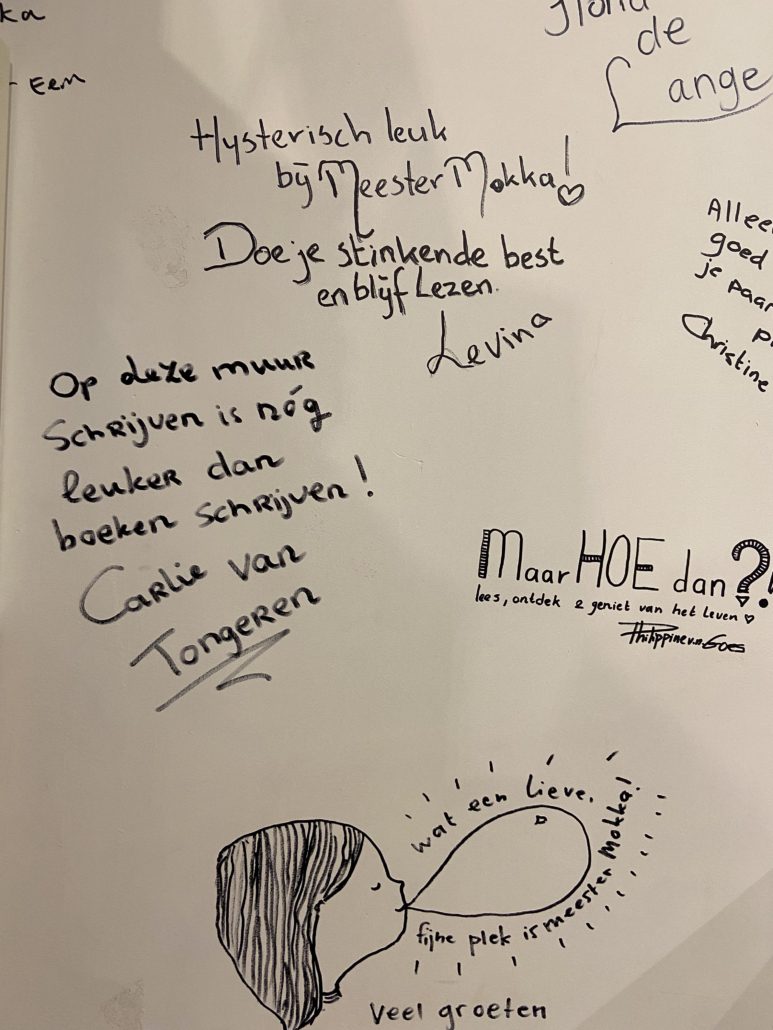 ka
- Eem
de
Lange
Hysterisch leuk
bij Meester Mokka!
Doe je stinkende best
en blijf Lezen.
Levina
Allee
goed
je paar
p
Christine
Op deze muur
Schrijven is nóg
leuker dan
boeken schrijven!
Carlie van
Tongeren
Maar HOE dan?!
lees, ontdek & geniet van het leven
Philippine van Goes
wat een lieve,
fijne plek is meester Mokka!
Veel groeten